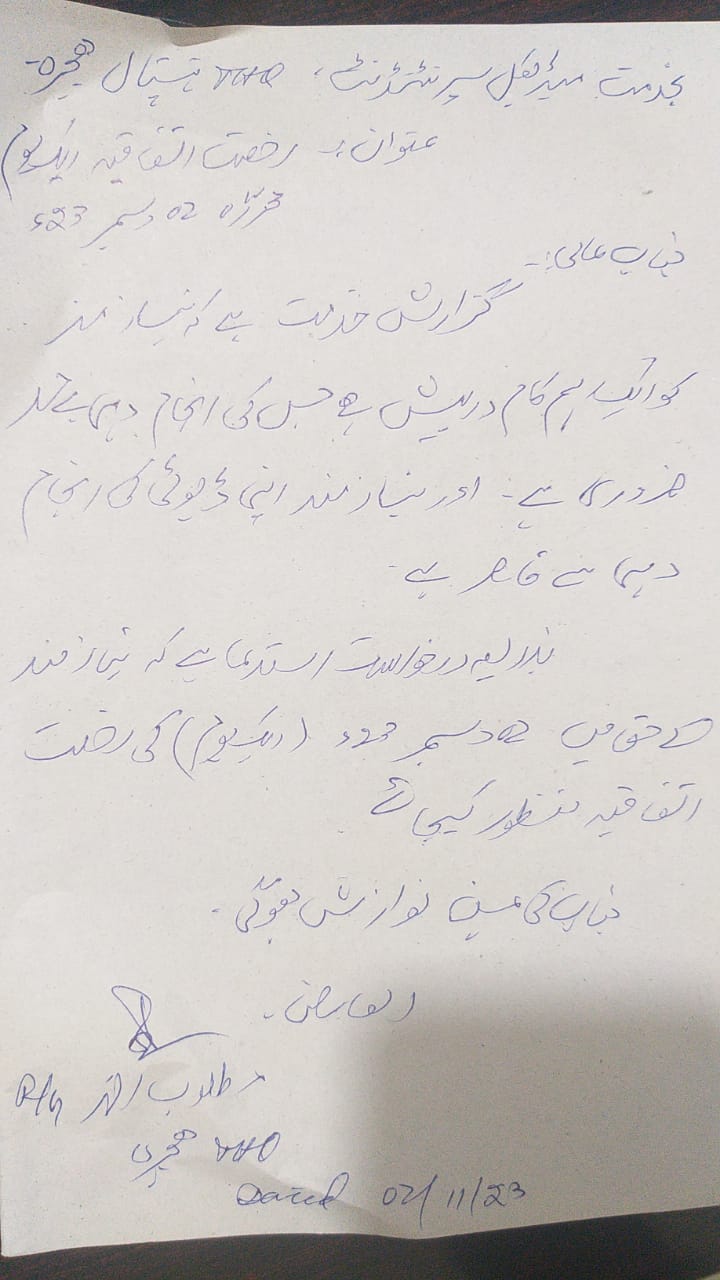 بخدمت میڈیکل سپرنٹنڈنٹ، THQ ہسپتال ہجیرہ۔
عنوان:۔ رخصت اتفاقیہ ایک یوم
محررہ 02 دسمبر 23ء
جناب عالی:۔
گزارش خدمت ہے کہ نیاز مند
کو ایک اہم کام درپیش ہے جس کی انجام دہی بے حد
ضروری ہے۔ اور نیاز مند اپنی ڈیوٹی کی انجام
دہی سے قاصر ہے۔
بذریعہ درخواست استدعا ہے کہ نیاز مند
کے حق میں 02 دسمبر 23ء (ایک یوم) کی رخصت
اتفاقیہ منظور کیجائے
جناب کی عین نوازش ہوگی۔
العارض۔
مطلوب
THQ ہجیرہ
Dated 02/11/23